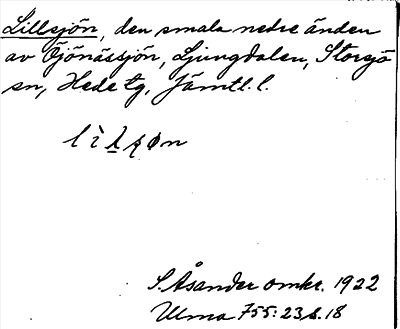 Lillsjön, den smala nedre änden
av Öjönässjön, Ljungdalen, Storsjö
sn, Hede tg, Jämtl. l.
S. Åsander omkr. 1922
Ulma 755:23 s. 18